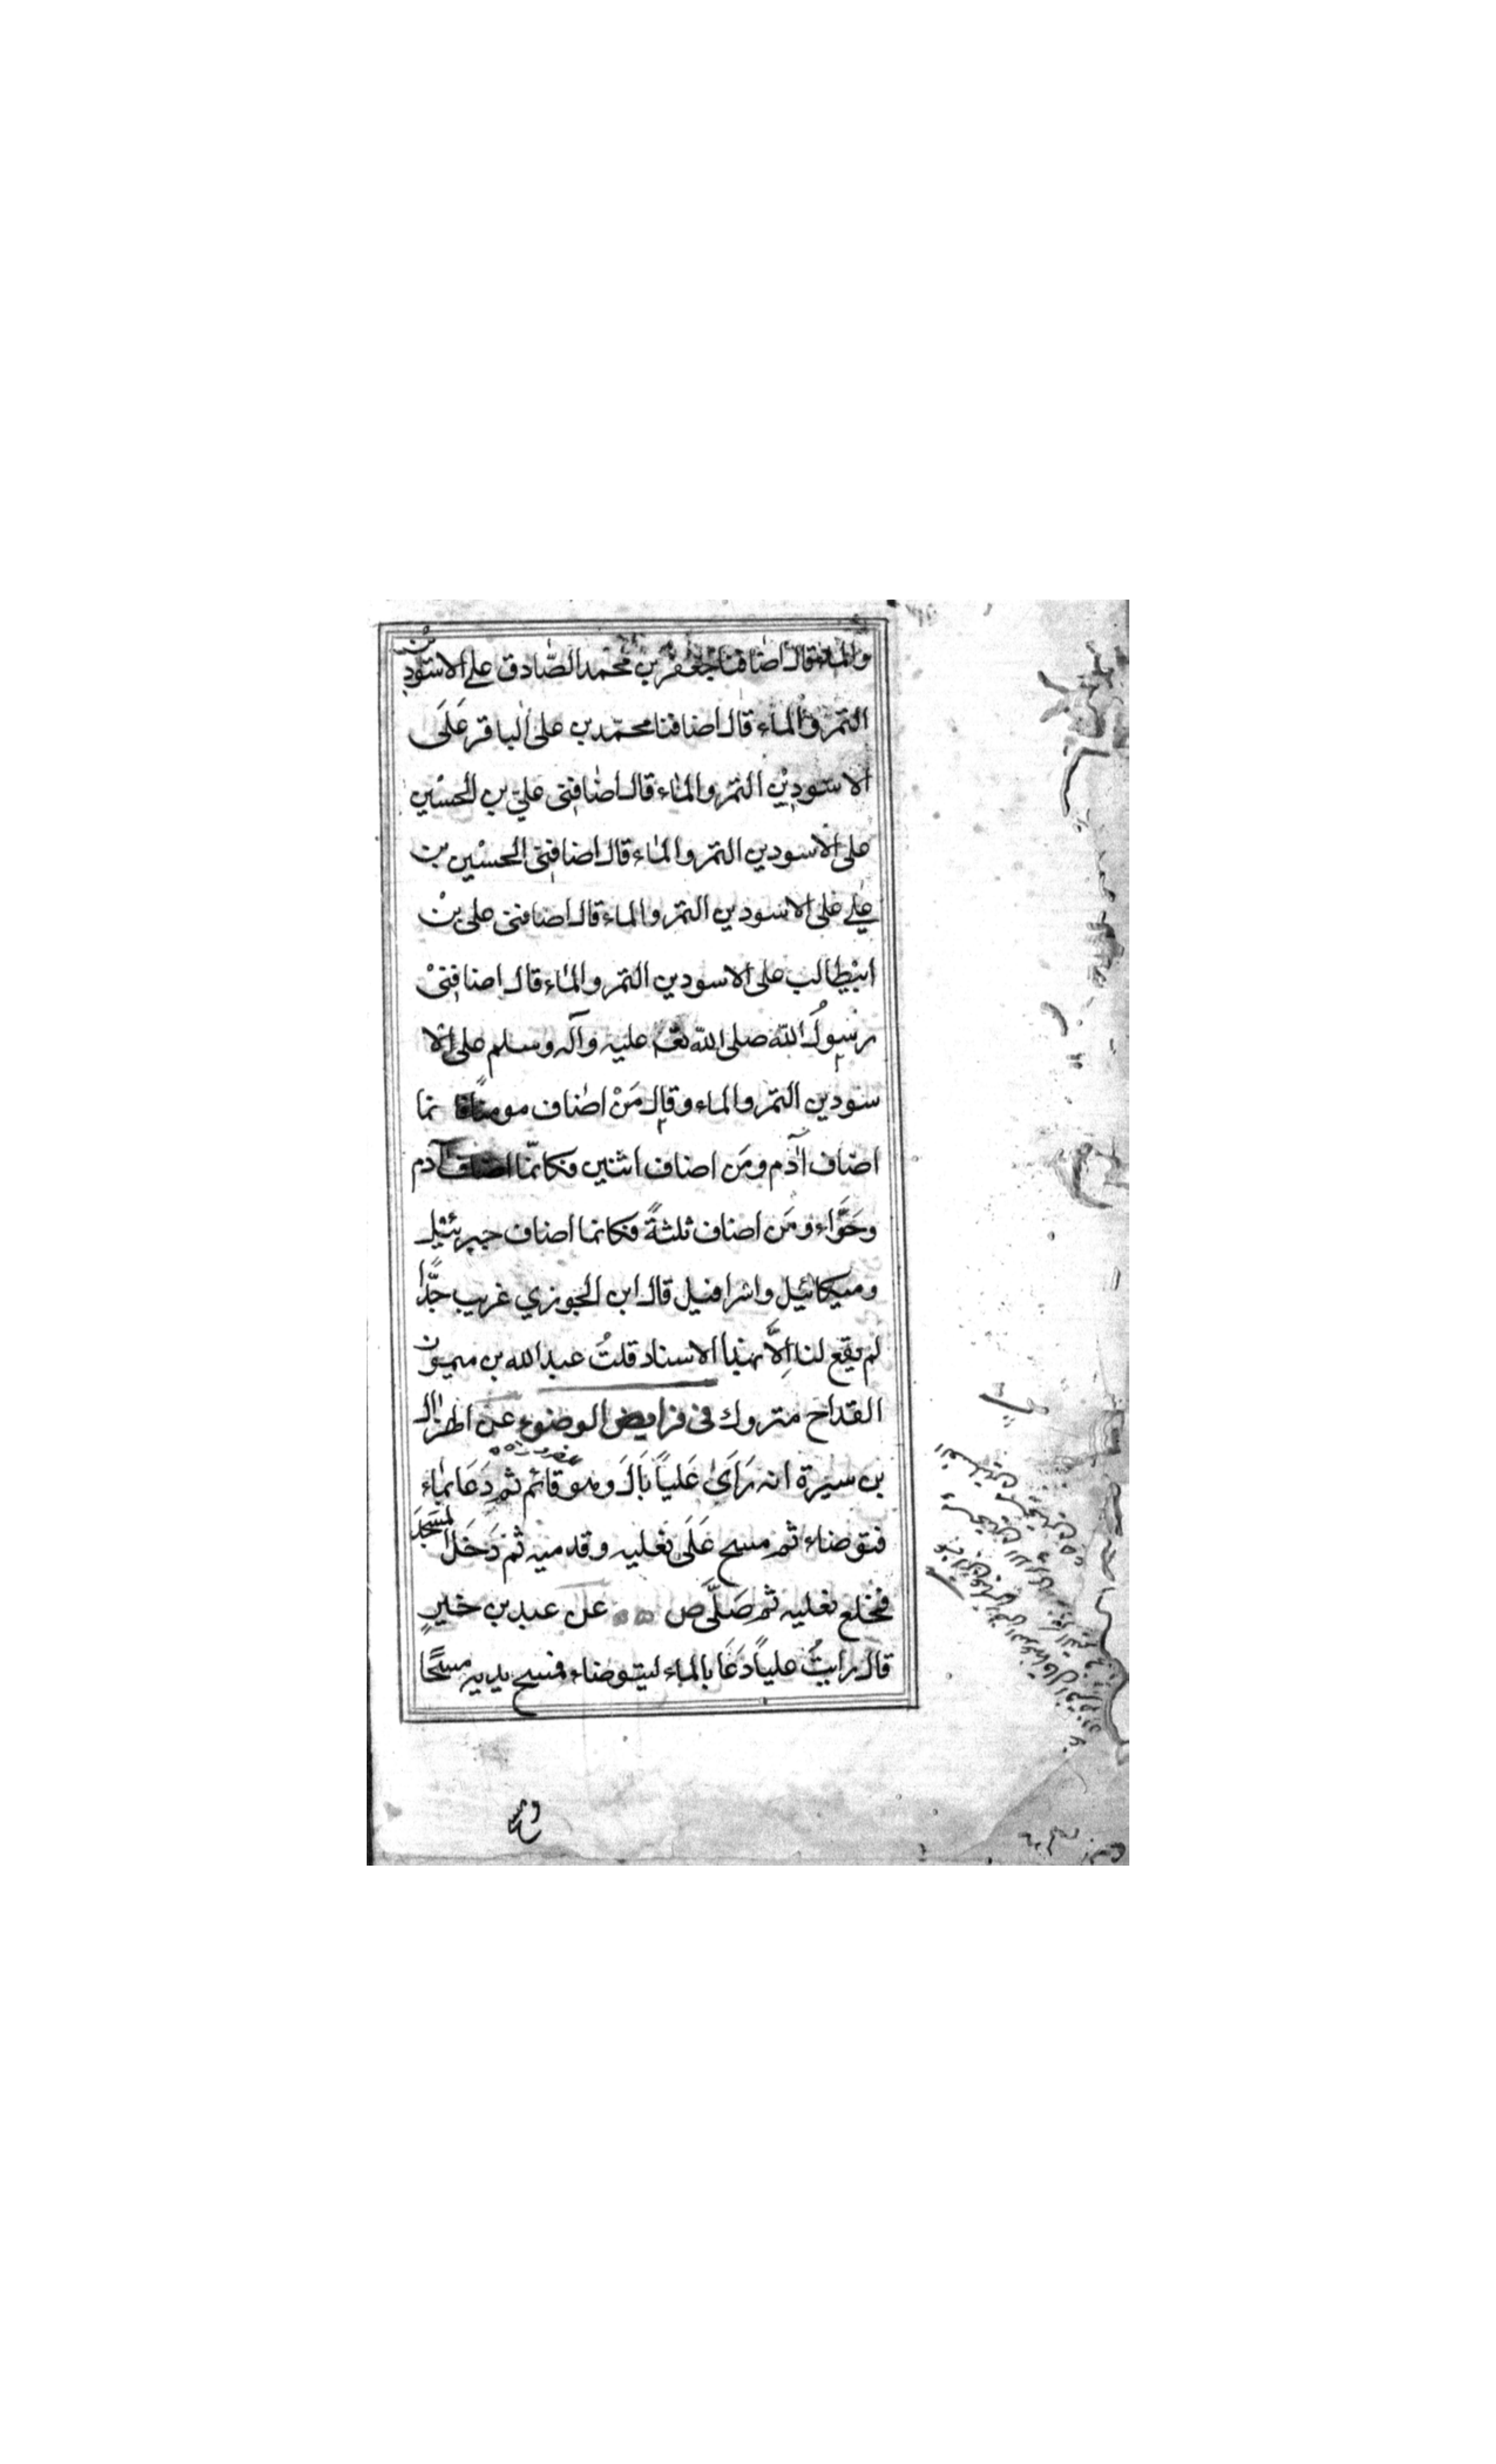 والماء قال اضافنا جعفر بن محمد الصّادق على الاسودين
التمر والماء قال اضافنا محمّد بن على الباقر عَلَى
الاسودين التمر والماء قال اضافنى علىّ بن الحسين
على الاسودين التمر والماء قال اضافنى الحسين بن
على على الاسودين التمر والماء قال اضافنى على بن
ابيطالب على الاسودين التمر والماء قال اضافنى
رسولُ الله صلى الله تعـ عليه وآله وسلم على الا
سودين التمر والماء وقال مَنْ اضاف مومنًا فكا نما
اضاف آدم ومَن اضاف اثنين فكانمّا اضاف آدم
وحَوَّاء ومَن اضاف ثلثةً فكانما اضاف جبرئيل
وميكائيل واسرافيل قال ابن الجوزي غريب جدًّا
لم يقع لنا اِلاَّ بهذا الاسناد قلتُ عبد الله بن ميمون
القداح متروك فى فرايض الوضوء عن النزال
بن سبرة انه رَاَىٰ عَلياً بَالَ وهو قائم ثم دَعَا بماء
فتوضاء ثم مسح عَلَى نعليه وقدميه ثم دَخَلَ المسجدَ
فخلع نعليه ثم صَلَّى ص عن عبد بن خيرٍ
قال رايتُ علياً دَعَا بالماء ليتوضاء فمسح يديه مسحًا